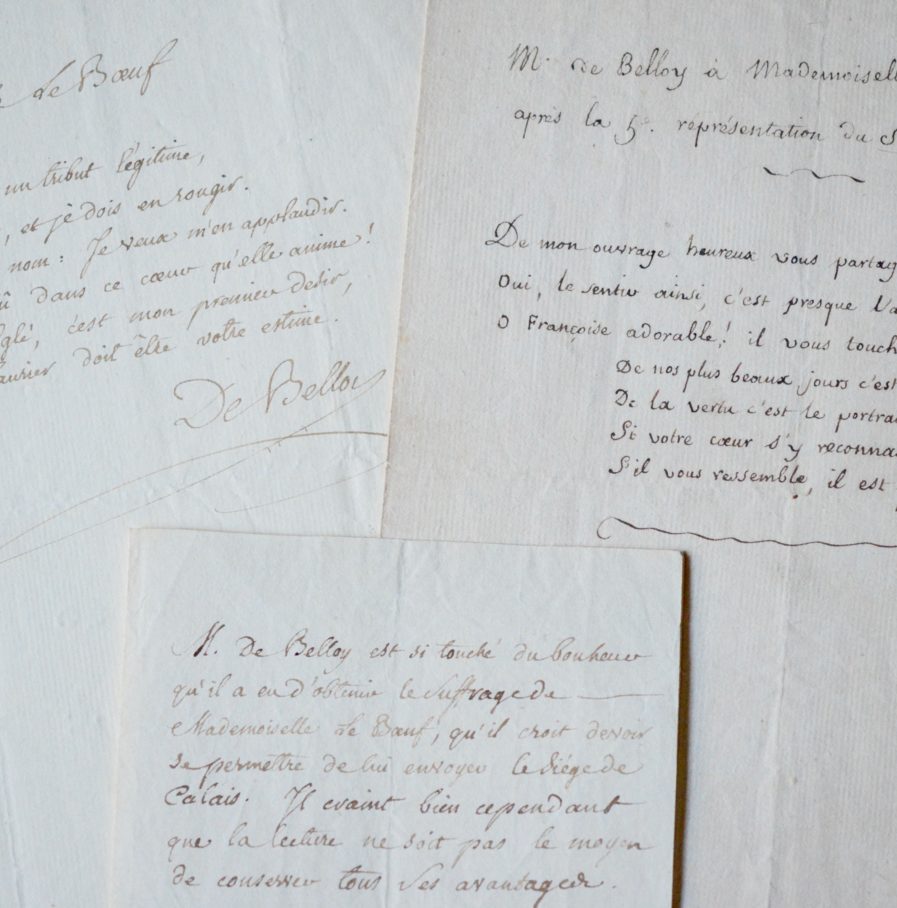 Le Bœuf
un tribut légitime,
, et je dois en rougir.
nom : Je veux m'en applaudir.
dans ce cœur qu'elle anime !
c'est mon premier desir,
doit être votre estime.
De Belloy
M. de Belloy à Mademoisell
après la 5e. réprésentation du S
De mon ouvrage heureux vous partag
Oui, le sentir ainsi, c'est presque l'a
O Françoise adorable ! il vous touch
De nos plus beaux jours c'est
De la vertu c'est le portra
Si votre cœur s'y reconna
S'il vous ressemble, il est
M. De Belloy est si touché du bonheur
qu'il a eu d'obtenir le Suffrage de
Mademoiselle Le Bœuf, qu'il croit devoir
se permettre de lui envoyer le Siége de
Calais. Il craint bien cependant
que la lecture ne soit pas le moyen
de conserver tous ses avantages.